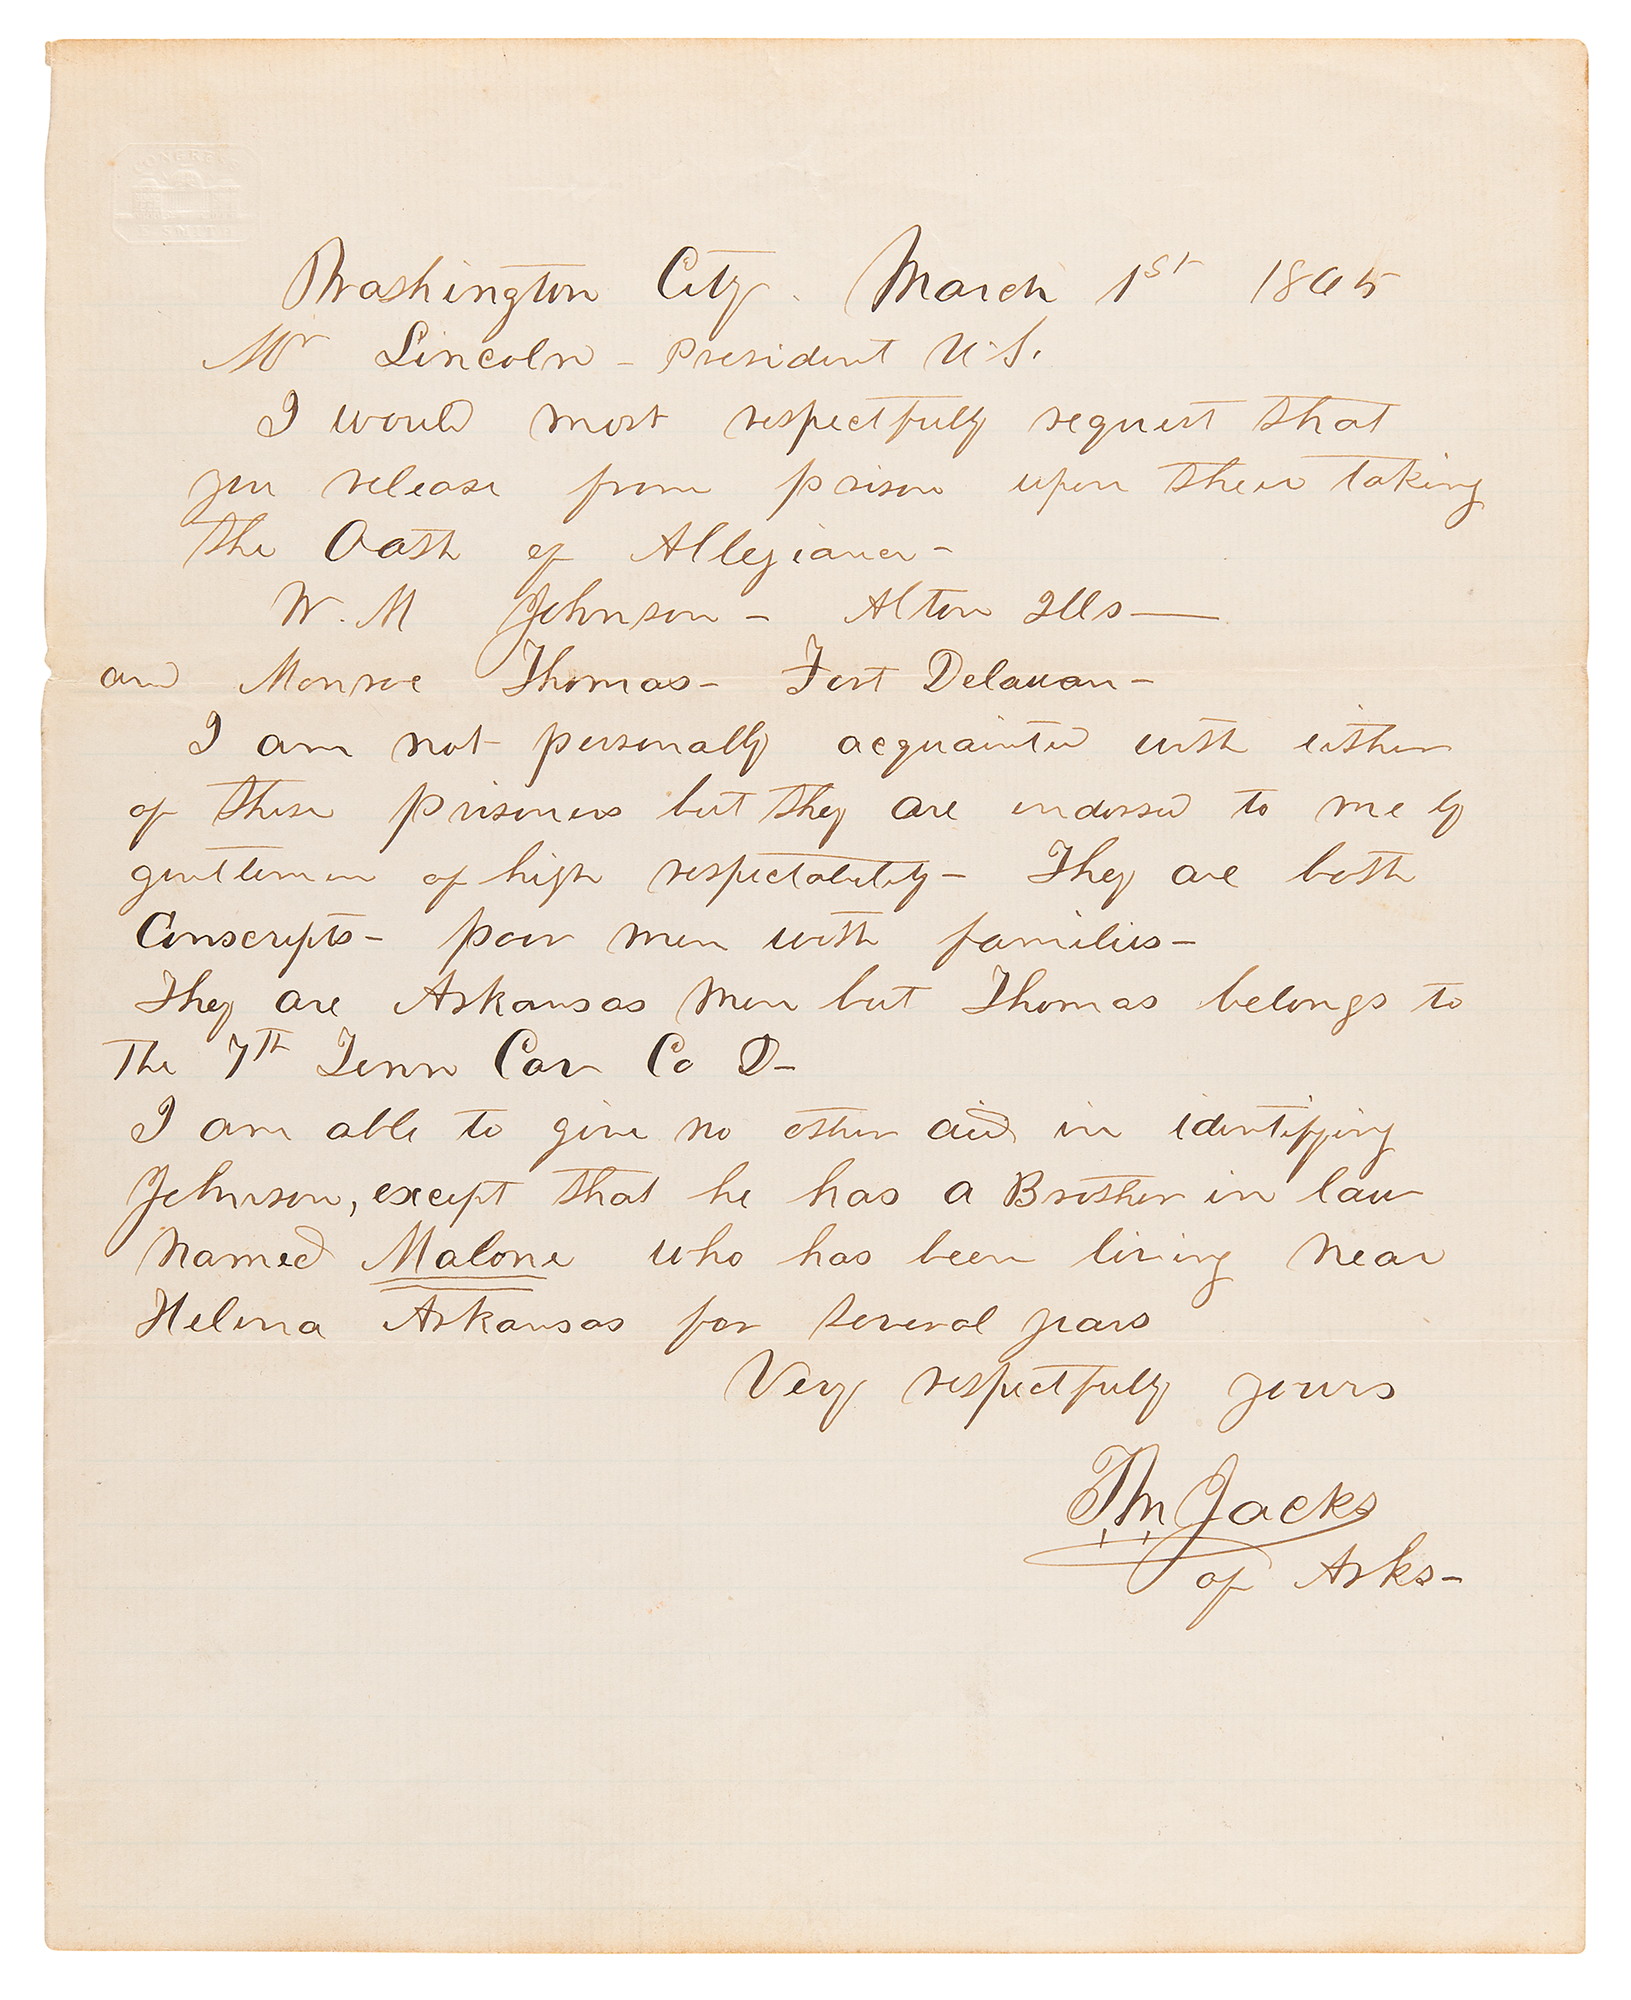 CONGRESS
Washington City. March 1st 1865
Mr Lincoln - President U.S.
I would most respectfully request that
you release from prison upon their taking
the Oath of Allegiance -
W. M Johnson - Alton Ills -
and Monroe Thomas - Fort Delawan -
I am not personally acquainted with either
of these prisoners but they are endorsed to me by
gentlemen of high respectability - They are both
Conscripts - poor men with families -
They are Arkansas men but Thomas belongs to
The 7th Tenn Cav Co D -
I am able to give no other aid in identifying
Johnson, except that he has a Brother in law
named Malone who has been living near
Helena Arkansas for several years
Very respectfully yours
TM Jacks
of Arks -